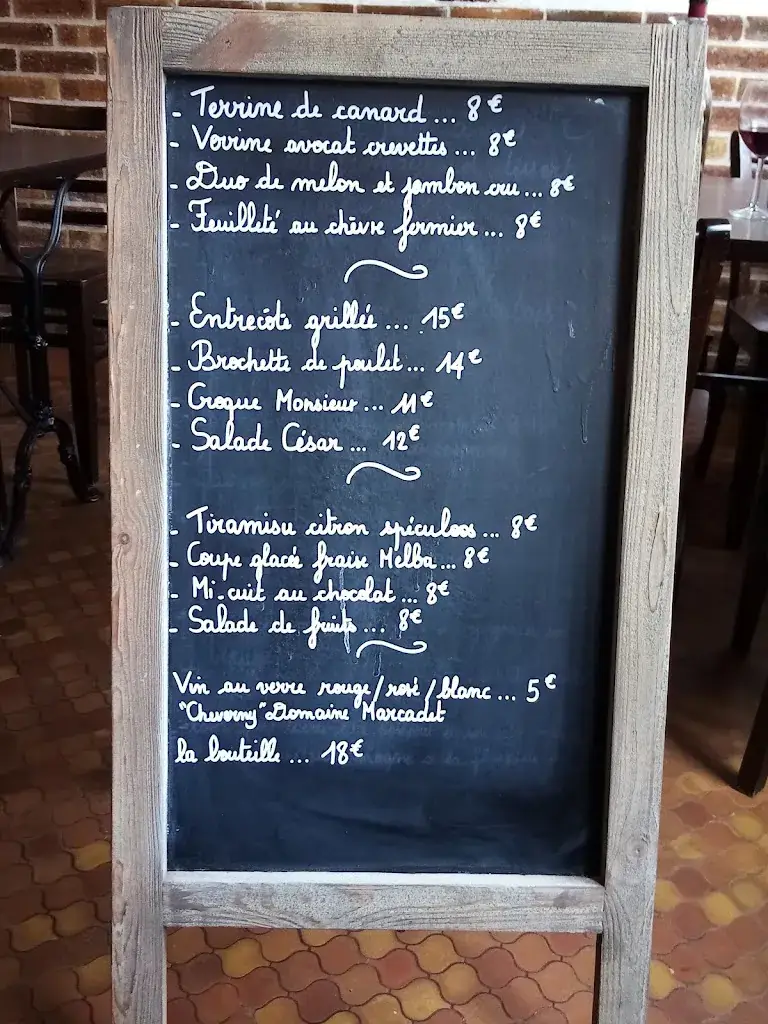 - Terrine de canard ... 8€
- Verrine avocat crevettes ... 8€
- Duo de melon et jambon cru ... 8€
- Feuilleté au chèvre fermier ... 8€
- Entrecôte grillée ... 15€
- Brochette de poulet ... 14€
- Croque Monsieur ... 11€
- Salade César ... 12€
- Tiramisu citron spéculoos ... 8€
- Coupe glacée fraise Melba ... 8€
- Mi-cuit au chocolat ... 8€
- Salade de fruits ... 8€
Vin au verre rouge/rosé/blanc ... 5€
"Cheverny" Domaine Marcadet
la bouteille ... 18€